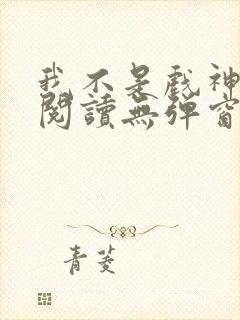 我不是戲神
閱讀無彈窗
青菱